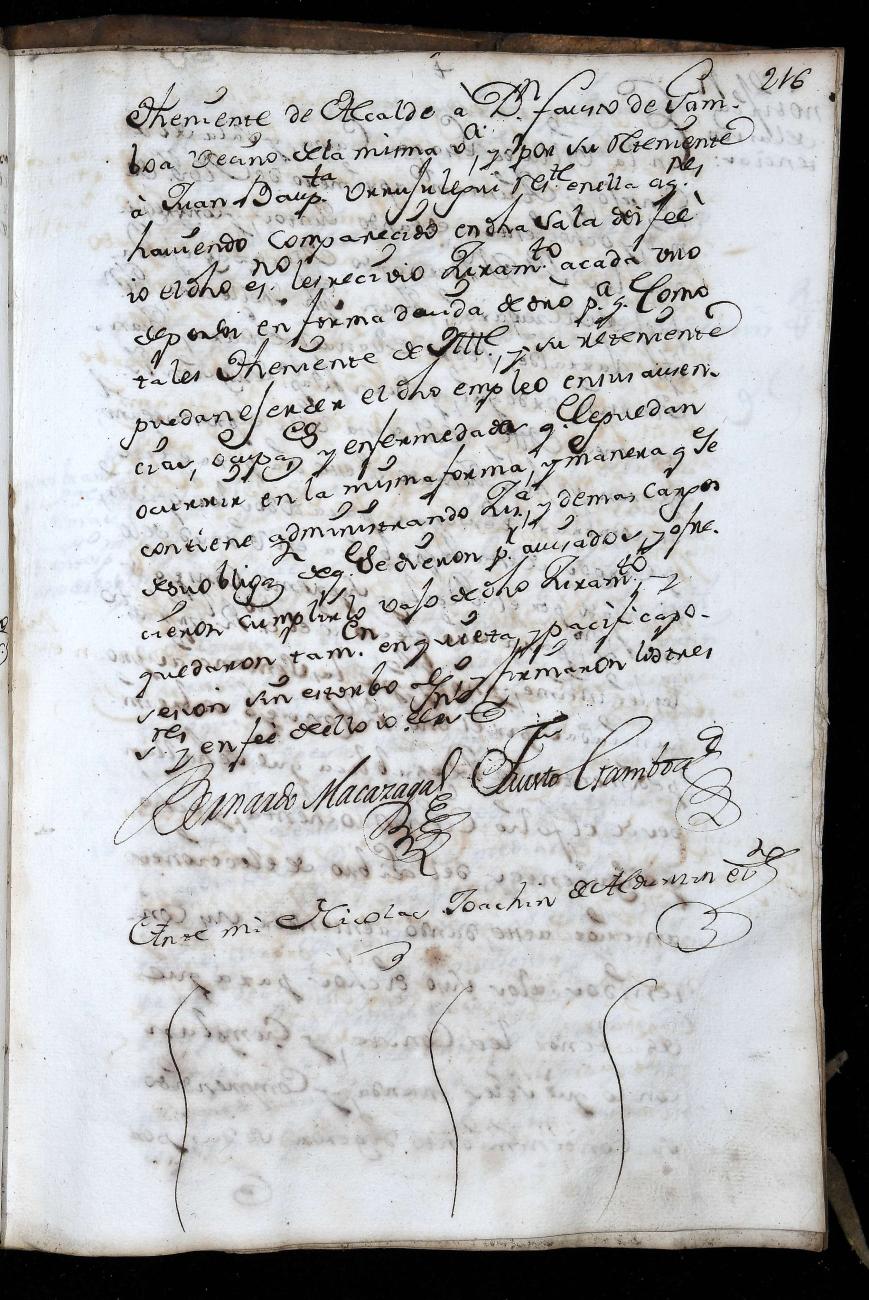 216
Theniente de Alcalde à Dn. fausto de Gam-
boa Vecino de la misma va. y por su Rtheniente
à Juan Baupta. Urrusulegui restte. en ella aq.res
haviendo Comparecido en dha Sala del fee
io el dho esno. les recivio Juramto. acada Uno
deporsi en forma devida de dro pa. q. Como
tales Theniente de Alle. y su rtheniente
puedan eserser el dho empleo en sus ausen-
cias, ocupaces y enfermedades q. Se puedan
ocurrir en la misma forma, y manera q Se
contiene administrando Jusa. y demas Cargos
desu obligazn de q. Se dieron pr. avisados, y ofre-
cieron cumplirlo vaso de dho Juramto. y
quedaron tamcn. en quieta, y pacifica po-
sesion sin estorvo alguno y firmaron los tres
sres y en fee de ello io el esno
Bernardo Macazaga Fausto Gamboa
Ante mi Nicolas Joachin de Aldunzin